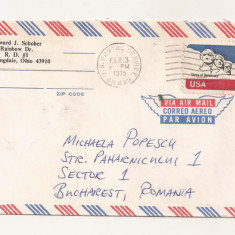 ward J. Schober
Rainbow Dr.
R. D. #1
ngdale, Ohio 43910
ZIP CODE
FEB 3
PM
1976
USA
VIA AIR MAIL
CORREO AEREO
PAR AVION
MICHAELA POPESCU
STR. PAHARNICULUI 1
SECTOR 1
BUCHAREST, ROMANIA